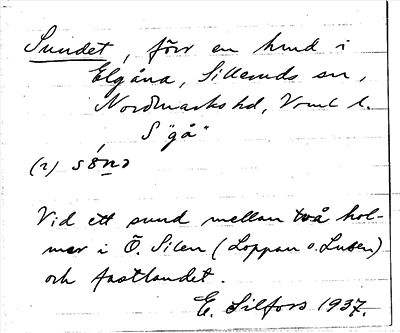 Sundet, förr en hmd i
Elgåna, Silleruds sn,
Nordmarks hd, Vrml l.
S "gå"
(2) sônd
Vid ett sund mellan två hol-
mar i Ö. Silen (Loppan o. Lusen)
och fastlandet.
E. Silfors 1937.